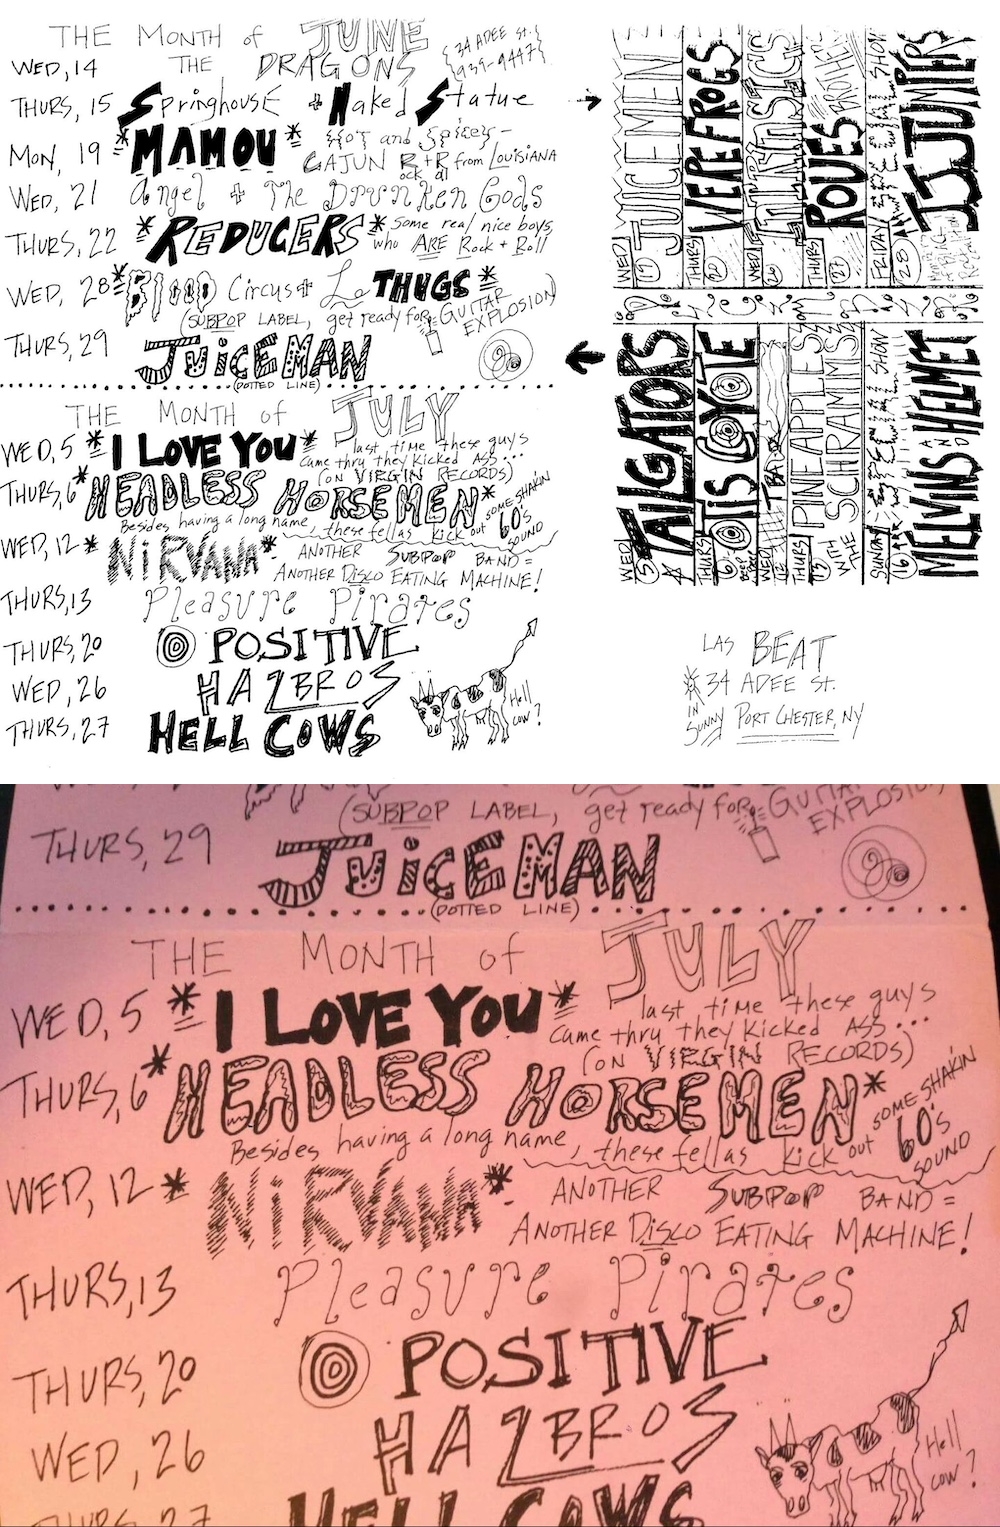 THE MONTH of JUNE
34 ADEE ST.
939-9447
WED, 14 THE DRAGONS
THURS, 15 Springhouse + Naked Statue
MON, 19 *MAMOU* Hot and Spicey-
CAJUN R+R from LOUISIANA
ock oll
WED, 21 Angel + The Drunken Gods
THURS, 22 *REDUCERS* some real nice boys
who ARE Rock + Roll
WED, 28 *Blood Circus + Le THUGS*
(SUBPOP LABEL, get ready for GUITAR EXPLOSION)
THURS, 29 JUiCEMAN
(DOTTED LINE)
THE MONTH of JULY
WED, 5 *I LOVE YOU* last time these guys
came thru they kicked ASS...
(ON VIRGIN RECORDS)
THURS, 6 *HEADLESS HORSEMEN*
Besides having a long name, these fellas kick out SOME SHAKIN 60's SOUND
WED, 12 * NiRVANA* ANOTHER SUBPOP BAND =
ANOTHER DISCO EATING MACHINE!
THURS, 13 Pleasure Pirates
THURS, 20 POSITIVE
WED, 26 HAZBROS
THURS, 27 HELL COWS
Hell cow?
WED 19 JUICEMEN
THURS 20 WEREFROGS
WED 26
THURS 27 ROUES BROTHERS
FRIDAY 28 SHOW JJ JUMPERS
WED 5 TAILGATORS
THURS 6 OTIS COYOTE
WED 12 TBA
THURS 13 PINEAPPLES
WITH THE SCHRAMMS
SUNDAY 16 SHOW MELVINS AND HELMET
LAS BEAT
34 ADEE ST.
IN SUNNY PORT CHESTER, NY
(SUBPOP LABEL, get ready for GUITAR EXPLOSION)
THURS, 29 JUiCEMAN
(DOTTED LINE)
THE MONTH of JULY
WED, 5 *I LOVE YOU* last time these guys
came thru they kicked ASS...
(ON VIRGIN RECORDS)
THURS, 6 *HEADLESS HORSEMEN*
Besides having a long name, these fellas kick out SOME SHAKIN 60's SOUND
WED, 12 * NiRVANA* ANOTHER SUBPOP BAND =
ANOTHER DISCO EATING MACHINE!
THURS, 13 Pleasure Pirates
THURS, 20 POSITIVE
WED, 26 HAZBROS
THURS, 27 HELL COWS
Hell cow?